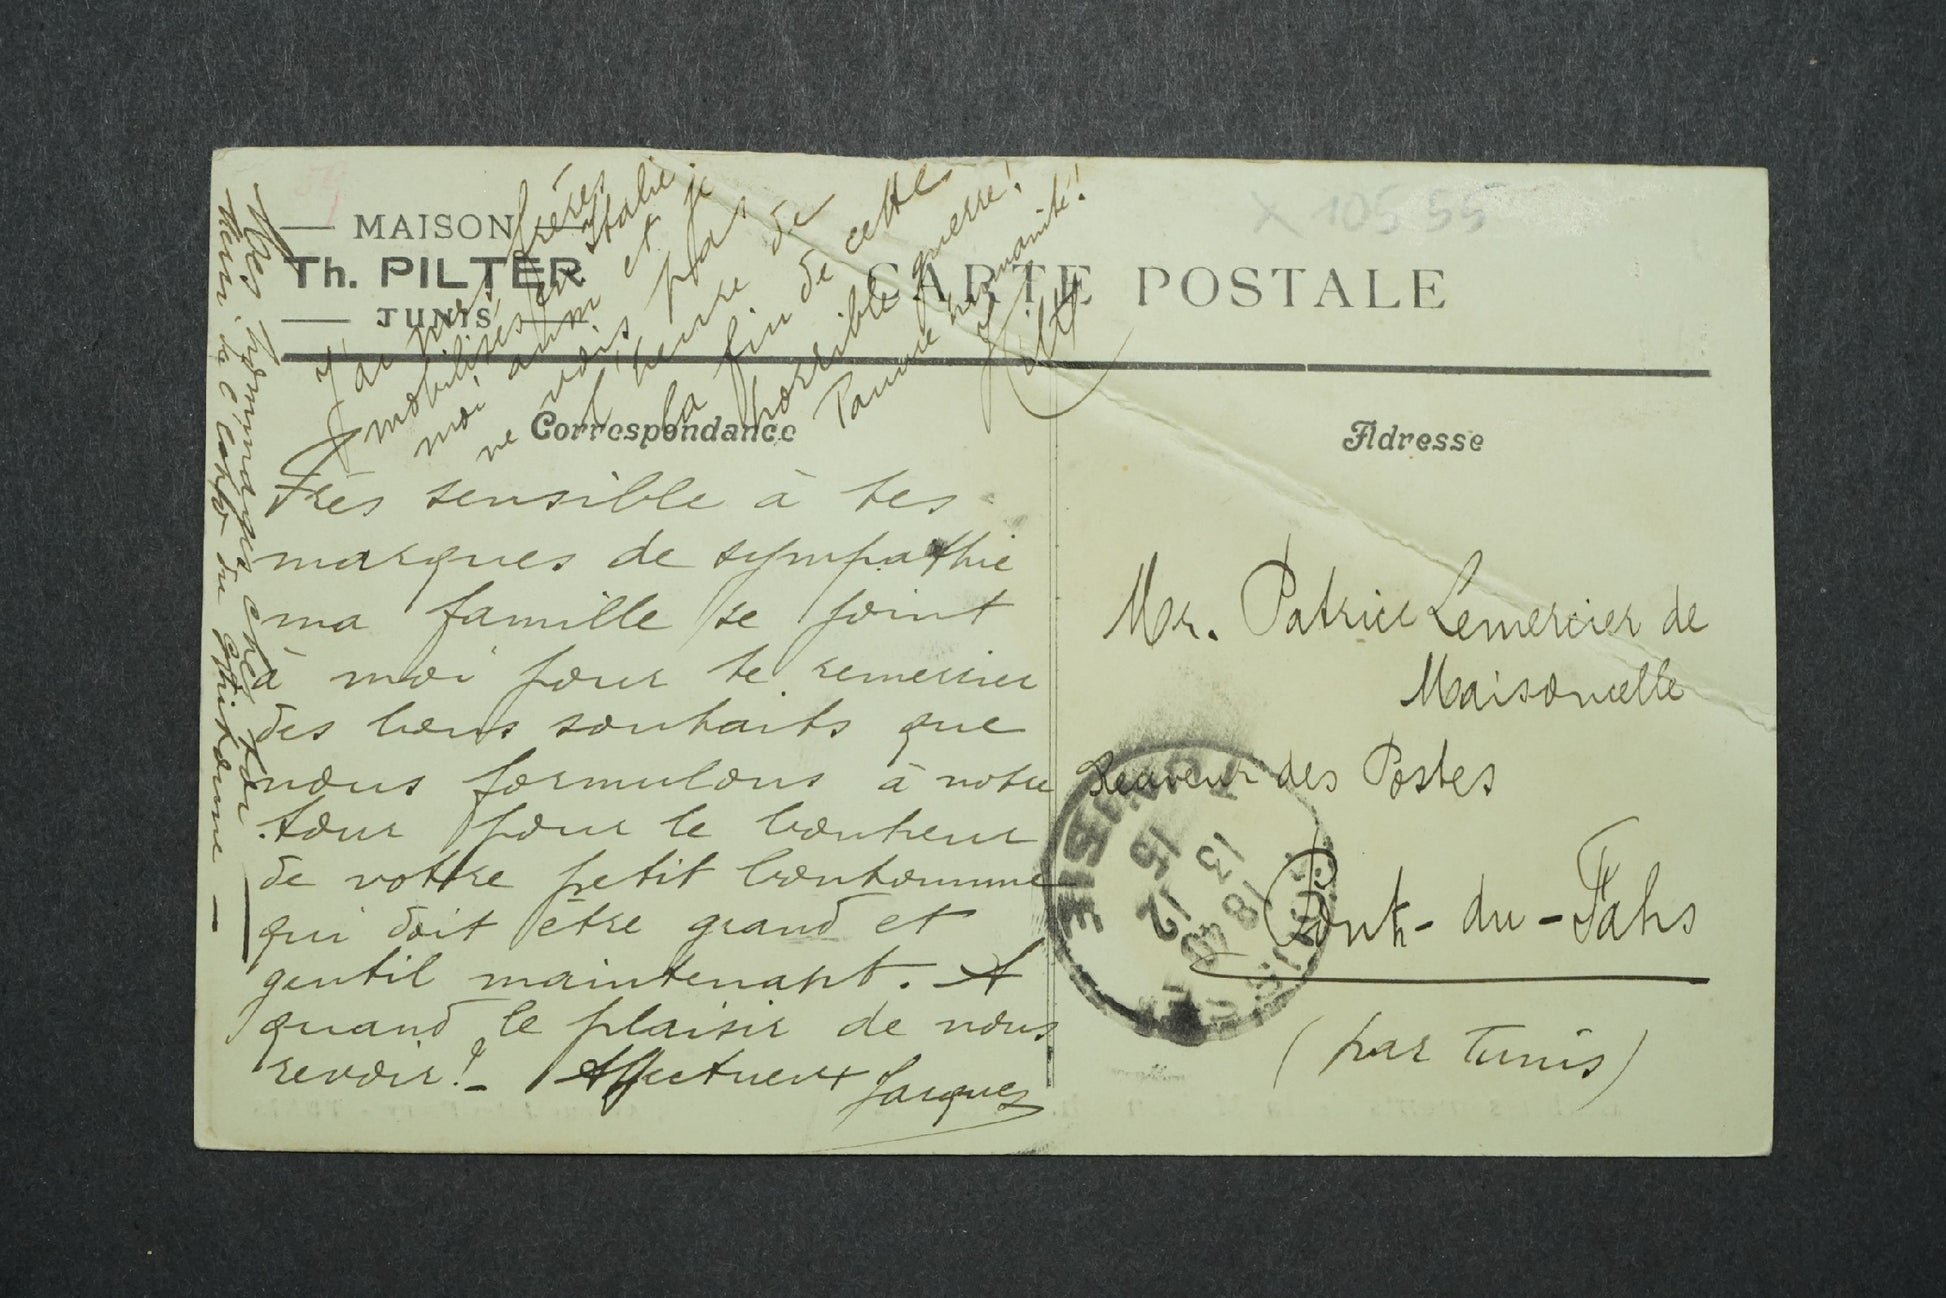 X 105 55
MAISON
Th. PILTER
TUNIS
CARTE POSTALE
Correspondance
Adresse
J'ai mes frères
mobilisés en Italie
moi aussi et je
ne vois pas
l'heure de
la fin de cette
horrible guerre!
Pauvre humanité!
Très sensible à tes
marques de sympathie
ma famille se joint
à moi pour te remercier
des bons souhaits que
nous formulons à notre
tour pour le bonheur
de votre petit bonhomme
qui doit être grand et
gentil maintenant. A
quand le plaisir de nous
revoir! Affectuent Jacques
Mes hommages chez toi
Mr. Patrice Lemercier de
Maisoncelle
Receveur des Postes
Pont-du-Fahs
(par Tunis)
TUNISIE
13 18 40
15 12